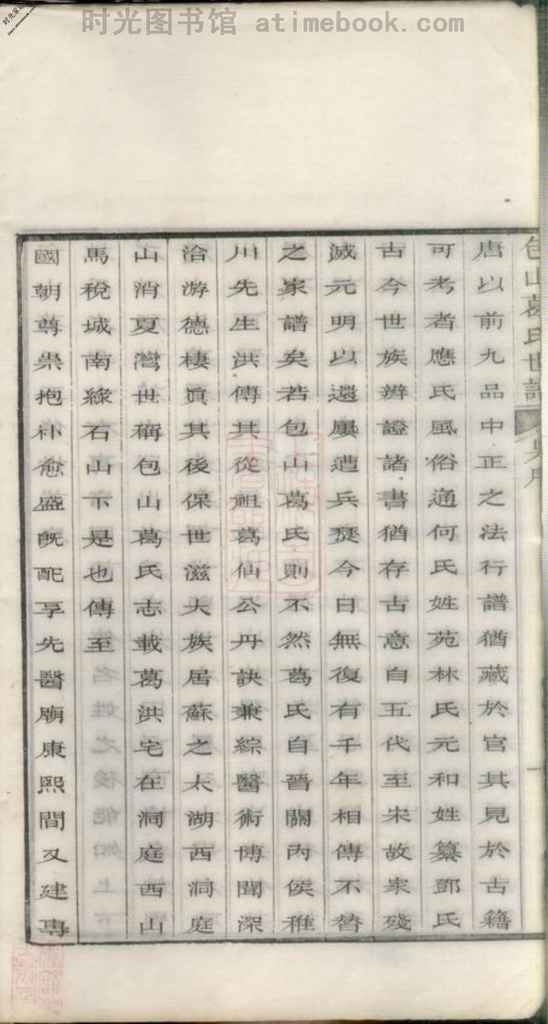 时光图书馆 atimebook.com
包山葛氏世譜
吳序
一
唐以前九品中正之法行譜猶藏於官其見於古籍
可考者應氏風俗通何氏姓苑林氏元和姓纂鄧氏
古今世族辨證諸書猶存古意自五代至宋故家殘
滅元明以還屢遭兵燹今日無復有千年相傳不替
之家譜矣若包山葛氏則不然葛氏自晉關內侯稚
川先生洪傳其從祖葛仙公丹訣兼綜醫術博聞深
洽游德棲真其後保世滋大族居蘇之太湖西洞庭
山消夏灣世稱包山葛氏志載葛洪宅在洞庭西山
馬稅城南綠石山下是也傳至
國朝尊崇抱朴愈盛既配享先醫廟康熙間又建專